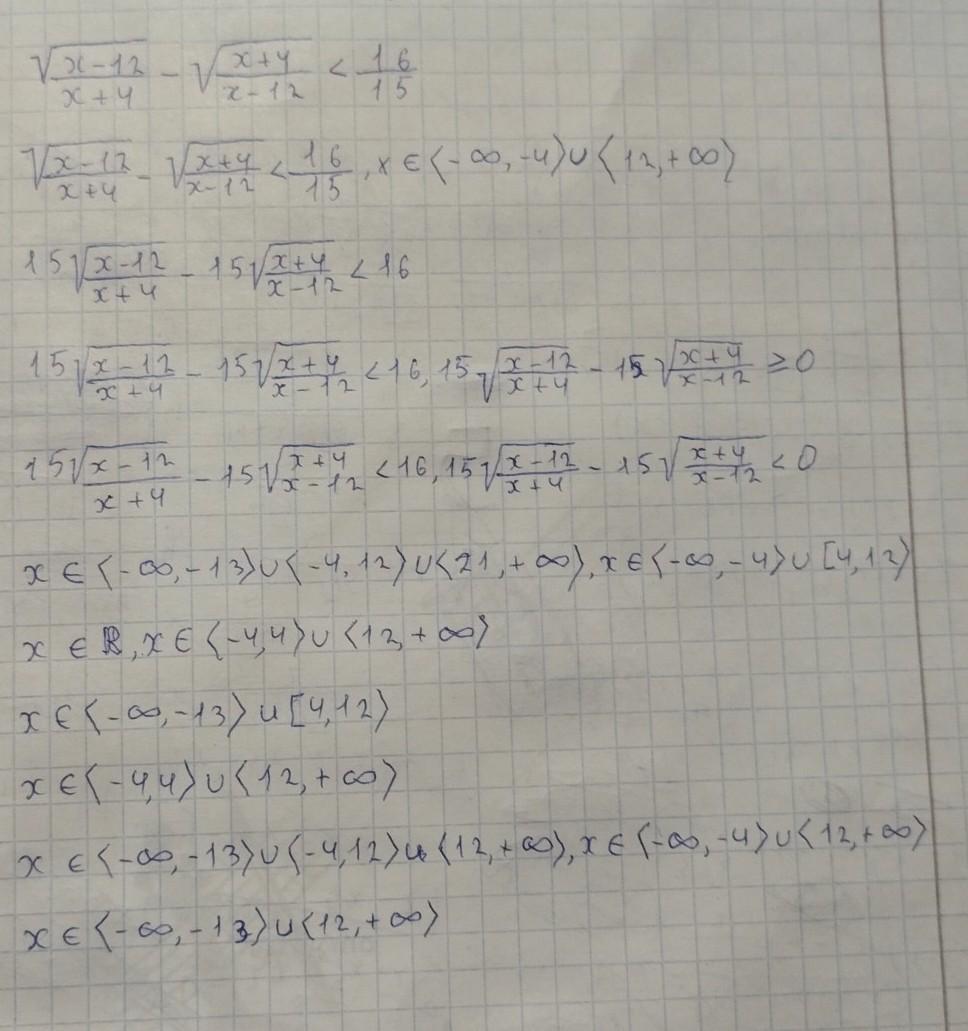 √((x-12)/(x+4)) - √((x+4)/(x-12)) < 16/15
√((x-12)/(x+4)) - √((x+4)/(x-12)) < 16/15, x ∈ ⟨-∞,-4⟩∪⟨12,+∞⟩
15√((x-12)/(x+4)) - 15√((x+4)/(x-12)) < 16
15√((x-12)/(x+4)) - 15√((x+4)/(x-12)) < 16, 15√((x-12)/(x+4)) - 15√((x+4)/(x-12)) ≥ 0
15√((x-12)/(x+4)) - 15√((x+4)/(x-12)) < 16, 15√((x-12)/(x+4)) - 15√((x+4)/(x-12)) < 0
x ∈ ⟨-∞,-13⟩∪⟨-4,12⟩∪⟨21,+∞⟩, x ∈ ⟨-∞,-4⟩∪[4,12⟩
x ∈ ℝ, x ∈ ⟨-4,4⟩∪⟨12,+∞⟩
x ∈ ⟨-∞,-13⟩∪[4,12⟩
x ∈ ⟨-4,4⟩∪⟨12,+∞⟩
x ∈ ⟨-∞,-13⟩∪⟨-4,12⟩∪⟨12,+∞⟩, x ∈ ⟨-∞,-4⟩∪⟨12,+∞⟩
x ∈ ⟨-∞,-13⟩∪⟨12,+∞⟩